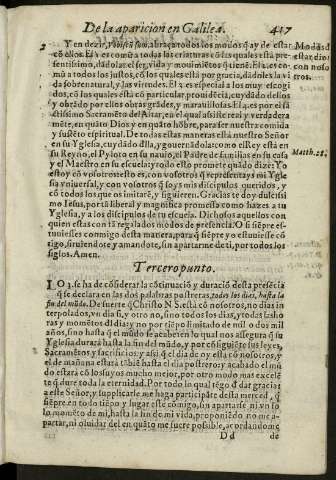 De la aparicion en Galilea. 417
Y en dezir, Vobiscũ sum, abraça todos los modos q̃ ay de estar
cõ ellos. El 1. es comũ a todas las criaturas cõ las quales està pre-
sentissimo, dãdolas el ser, vida y movimiẽtos q̃ tienẽ. El 2. es co-
mũ a todos los justos, cõ los quales està por gracia, dãdoles la vi-
da sobrenatural, y las virtudes. El 3. es especial a los muy escogi-
dos, cõ los quales està cõ particular providẽcia,
y obrãdo por ellos obras grãdes, y maravillosas. El 4. es por el sã
ctissimo Sacramẽto del Altar, en el qual assiste real y verdadera
mẽte, en quãto Dios y en quanto hõbre, para ser nuestra comida
y sustẽto espiritual. De todas estas maneras està nuestro Señor
en su Yglesia, cuydãdo dlla, y governãdola: como el Rey està en
su Reyno, el Piloto en su navio, el Padre de familias en su casa
y el Maestro en su escuela: y todo esto promete quãdo dize: Yo
estoy cõ vosotros esto es, con vosotros q̃ representays mi Ygle
sia vniversal, y con vosotros q̃ soys mis dicipulos queridos, y
cõ todos los que os imitarẽ, y siguieren. Gracias te doy dulcissi
mo Iesus, por tã liberal y magnifica promessa como hazes a tu
Yglesia, y a los discipulos de tu escuela. Dichosos aquellos con
quien estas con tã regalados modos de presencia. O si siẽpre es-
tuviesses conmigo desta manera, para q̃ siẽpre yo estuviesse cõ
tigo, sirviendote y amandote, sin apartarme de ti, por todos los
siglos. Amen.
Modos d̃
estar dios
con noso
tros.
Matth. 28.
Tercero punto.
LO 3. se ha de cõsiderar la cõtinuaciõ y duraciõ desta presẽcia
q̃ se declara en las dos palabras postreras, todos los dias, hasta la
fin del mũdo. De suerte q̃ Christo N. S. està cõ nosotros, no dias in
terpolados, vn dia si, y otro no, sino todos los dias, y todas las ho
ras y momẽtos dl dia: y no por tiẽpo limitado de mil o dos mil
años, sino hasta q̃ el mũdo se acabe: en lo qual nos assegura q̃ su
Yglesia durarà hasta la fin del mũdo, y por cõsiguiẽte sus leyes,
Sacramẽtos y sacrificios: y assi q̃ el dia de oy està cõ nosotros, y
el de mañana estarà tãbiẽ hasta el dia postrero: y acabado el mũ
do estarà cõ los suyos mucho mejor, por otro modo mas excelẽ
te q̃ dure toda la eternidad. Por todo lo qual tẽgo d̃ dar gracias
a este Señor, y suplicarle me haga participãte desta merced, q̃
siẽpre en todo tiẽpo y lugar este cõmigo, sin apartarse ni vn so
lo momẽto de mi, hasta la fin de mi vida, proponiẽdo no me a-
partar, ni olvidar del en quãto me fuere possible, acordandome
D d de